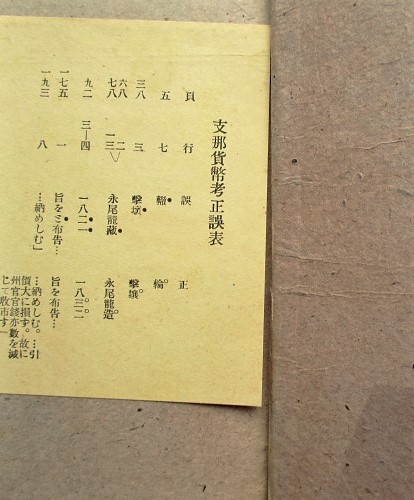 支那貨幣考正誤表
頁 行 誤 正
五 七
三八 三 擊 擊壤
六八 二
七八 一三 永尾龍藏 永尾龍造
九二 三—四 一八二一 一八三二
一七五 一 旨をミ布告… 旨を布告…
一九三 八 …納めしむ」 …納めしむ。…引
價大に損す。故に
州官官錢亦數を減
じて收市す